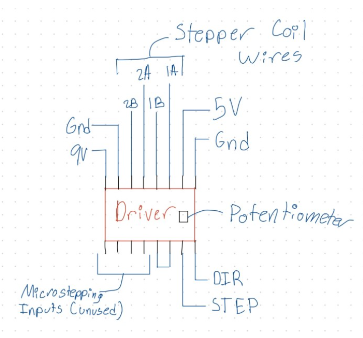 Stepper Coil
Wires
2A 1A
2B 1B
5V
Gnd
Gnd
9V
Driver
Potentiometer
DIR
STEP
Microstepping
Inputs (unused)